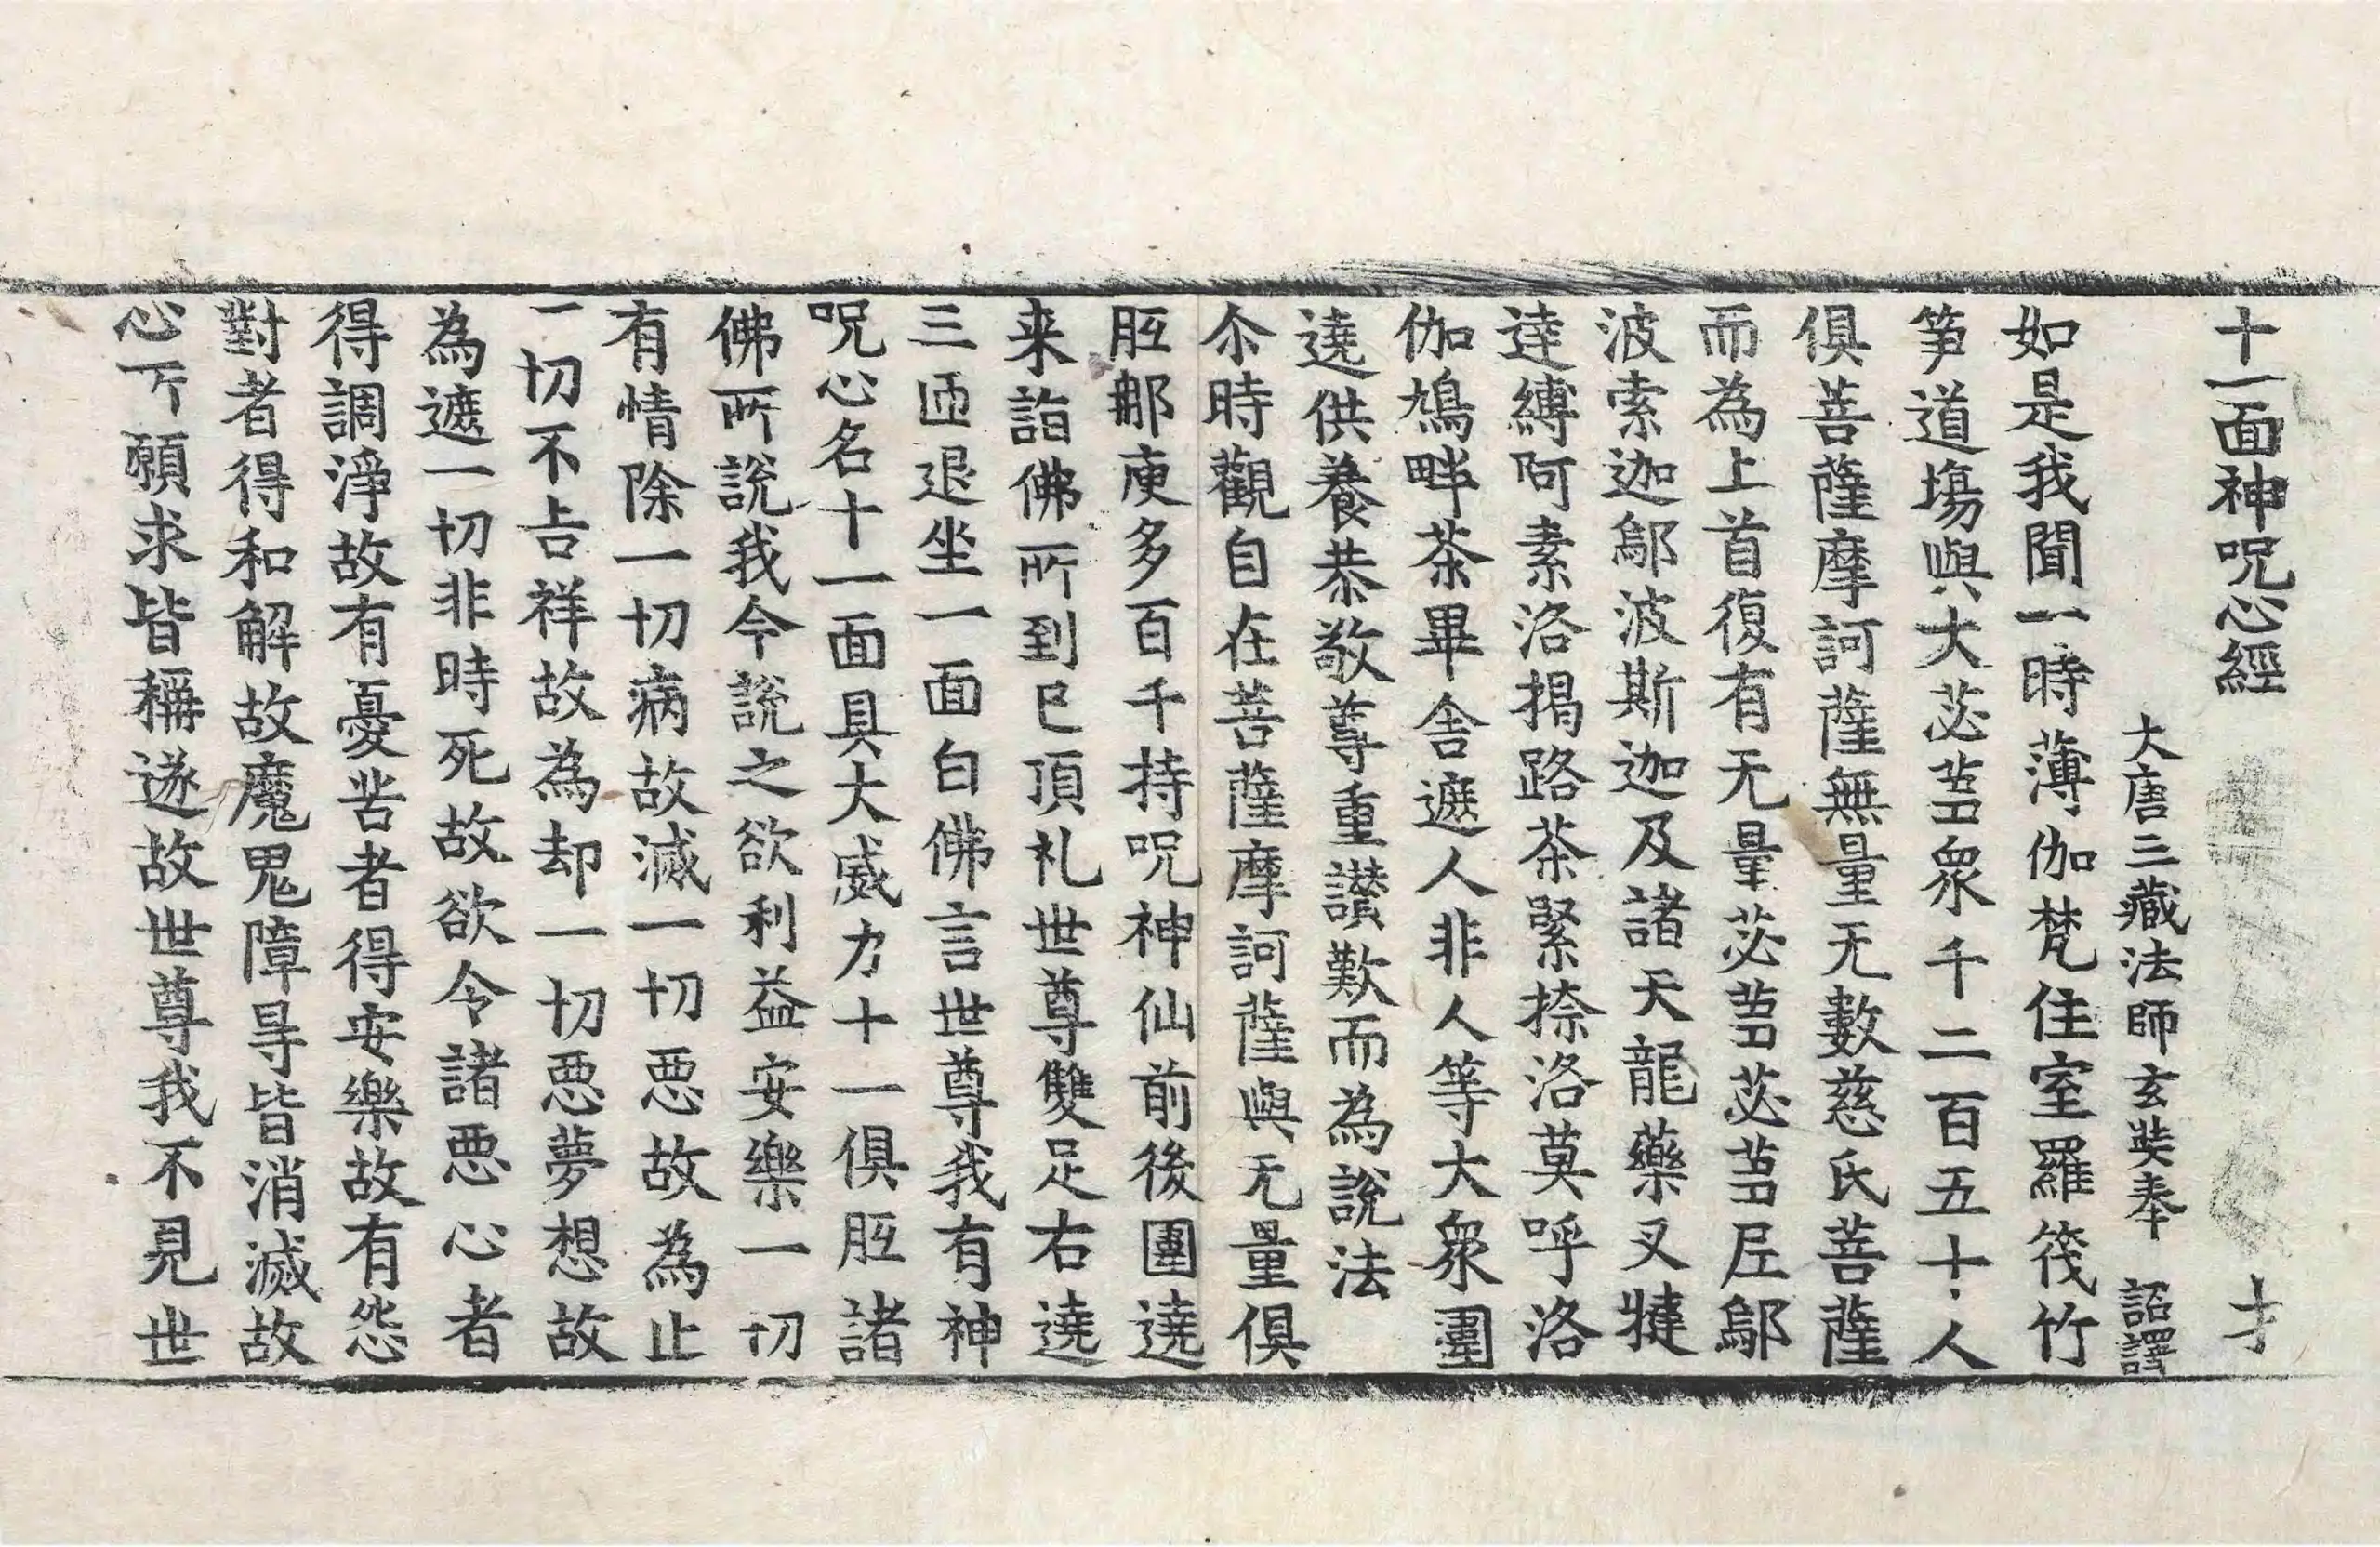 十一面神呪心經 才
大唐三藏法師玄奘奉 詔譯
如是我聞一時薄伽梵住室羅筏竹
笋道塲與大苾芻衆千二百五十人
俱菩薩摩訶薩無量无數慈氏菩薩
而為上首復有无量苾芻苾芻尼鄔
波索迦鄔波斯迦及諸天龍藥叉揵
達縛阿素洛揭路荼緊捺洛莫呼洛
伽鳩畔荼畢舍遮人非人等大衆圍
遶供養恭敬尊重讃歎而為說法
尒時觀自在菩薩摩訶薩與无量俱
胝那庾多百千持呪神仙前後圍遶
来詣佛所到已頂礼世尊雙足右遶
三匝退坐一面白佛言世尊我有神
呪心名十一面具大威力十一俱胝諸
佛所說我今說之欲利益安樂一切
有情除一切病故滅一切惡故為止
一切不吉祥故為却一切惡夢想故
為遮一切非時死故欲令諸惡心者
得調淨故有憂苦者得安樂故有怨
對者得和解故魔鬼障㝵皆消滅故
心所願求皆稱遂故世尊我不見世